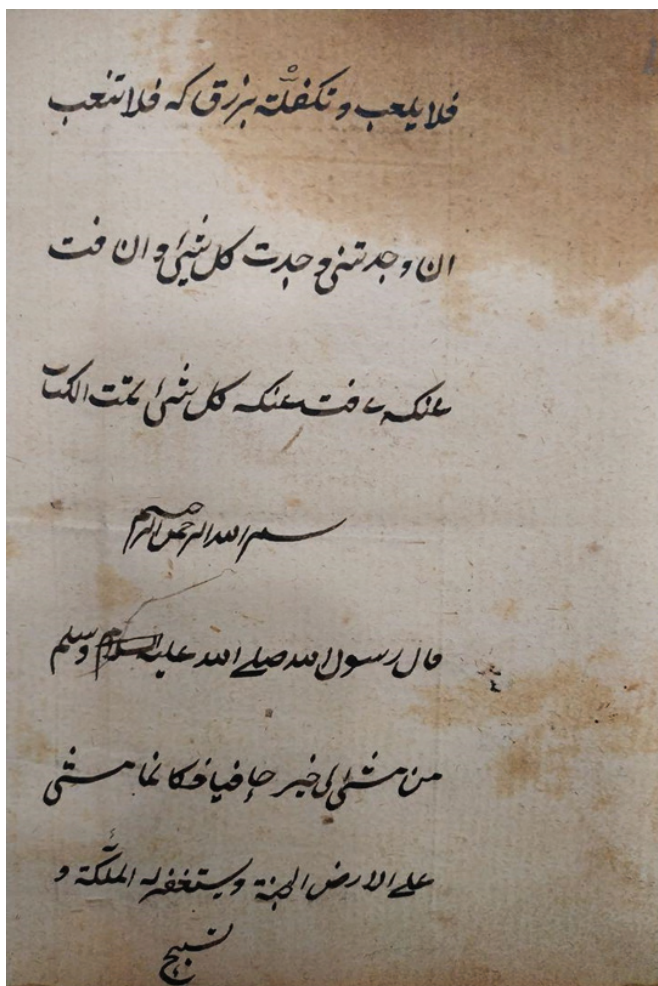 فلا يلعب و تكفلته برزق كه فلا تتعب
ان وجدتنى وجدت كل شئ وان فت
عنكه فت عنكه كل شئ تمت الكتاب
بسم الله الرحمن الرحيم
قال رسول الله صلے الله عليه السلام وسلم
من مشى الى خير حافيا فكانما مشى
علے الارض الجنة ويستغفر له الملئكة و
تسبح